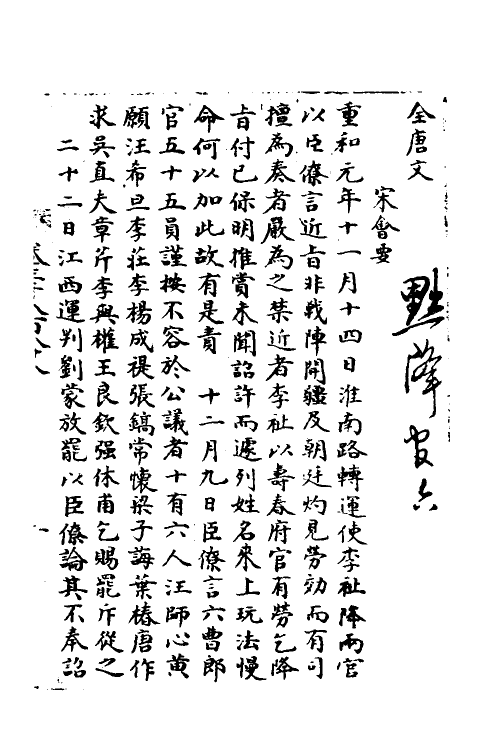 全唐文
宋會要
黜降官六
重和元年十一月十四日淮南路轉運使李祉降兩官
以臣僚言近旨非戰陣開疆及朝廷灼見勞効而有司
擅為奏者嚴為之禁近者李祉以壽春府官有勞乞降
旨付已保明推賞未聞詔許而遽列姓名來上玩法慢
命何以加此故有是責 十二月九日臣僚言六曹郎
官五十五員謹按不容於公議者十有六人汪師心黃
願汪希旦李莊李楊成禔張鎬常懷梁子誨葉椿唐作
求吳直夫章芹李與權王良欽强休甫乞賜罷斥從之
二十二日江西運判劉蒙放罷以臣僚論其不奉詔
一